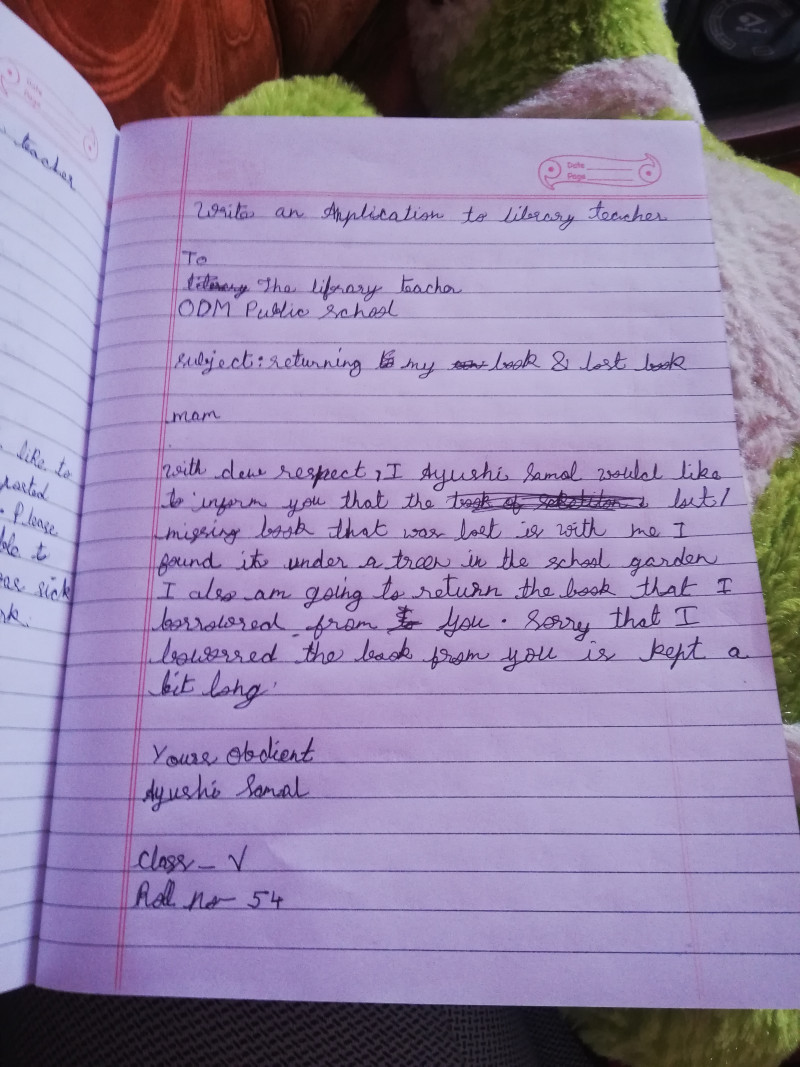 Date
Page
teacher
like to
Please
sick
Date
Page
Write an Application to library teacher
To
The library teacher
ODM Public school
subject: returning my book & lost book
mam
with dew respect, I Ayushi Samal would like
to inform you that the lost/
missing book that was lost is with me I
found it under a treen in the school garden
I also am going to return the book that I
borrowred from You. Sorry that I
bowerred the book from you is kept a
bit long.
Yours Obdient
Ayushi Samal
Class - V
Roll no - 54